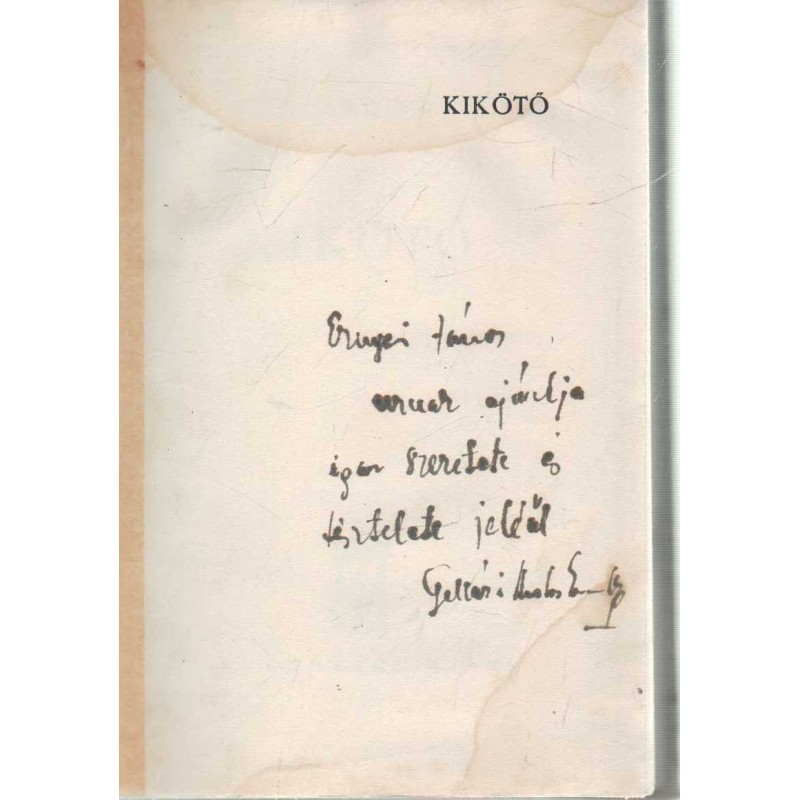 KIKÖTŐ
Ernyei János
urnak ajánlja
igaz szeretete és
tisztelete jeléül
Gelléri Andor Endre